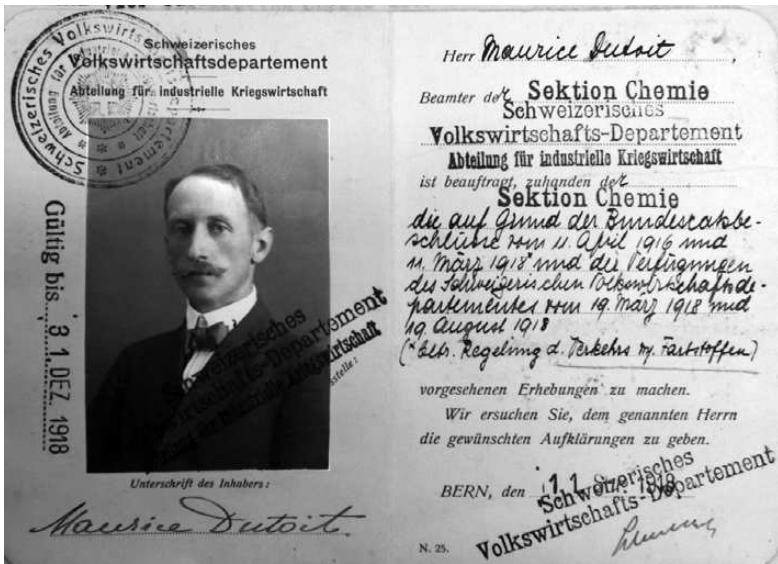 Schweizerisches
Volkswirtschaftsdepartement
Abteilung für industrielle Kriegswirtschaft
Schweizerisches Volkswirtschafts-Departement
Gültig bis 31. DEZ. 1918
Schweizerisches
Volkswirtschafts-Departement
Abteilung für industrielle Kriegswirtschaft
Unterschrift des Inhabers:
Maurice Dutoit.
Herr Maurice Dutoit,
Beamter der Sektion Chemie
Schweizerisches
Volkswirtschafts-Departement
Abteilung für industrielle Kriegswirtschaft
ist beauftragt, zuhanden der
Sektion Chemie
die auf Grund der Bundesratsbe-
schlüsse vom 11. April 1916 und
11. März 1918 und die Verfügungen
des Schweizerischen Volkswirtschaftsde-
partementes vom 19. März 1918 und
19. August 1918
(betr. Regelung d. Verkehrs m. Farbstoffen)
vorgesehenen Erhebungen zu machen.
Wir ersuchen Sie, dem genannten Herrn
die gewünschten Aufklärungen zu geben.
BERN, den 11. 1918
Schweizerisches
Volkswirtschafts-Departement
N. 25.